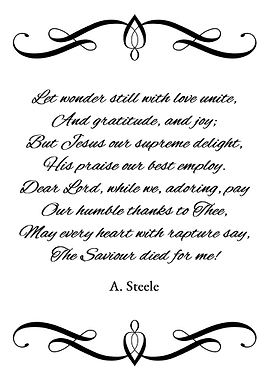 Let wonder still with love unite,
And gratitude, and joy;
But Jesus our supreme delight,
His praise our best employ.
Dear Lord, while we, adoring, pay
Our humble thanks to Thee,
May every heart with rapture say,
The Saviour died for me!
A. Steele